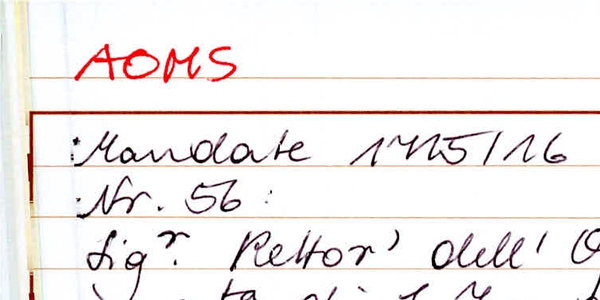 AOMS
Mandate 1715/16
Nr. 56:
Sigʳ. Rettor' dell'